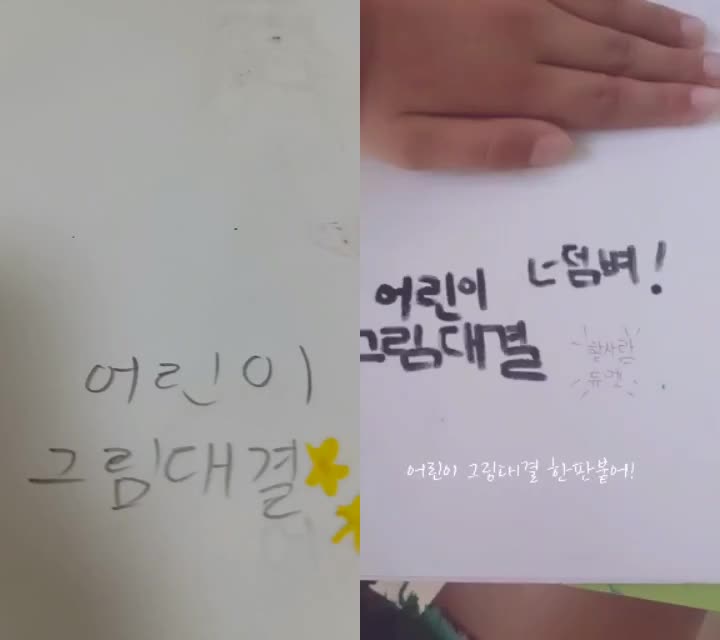 어린이
그림대결
너 덤벼!
어린이
그림대결
할사람
듀엣
어린이 그림대결 한판붙어!